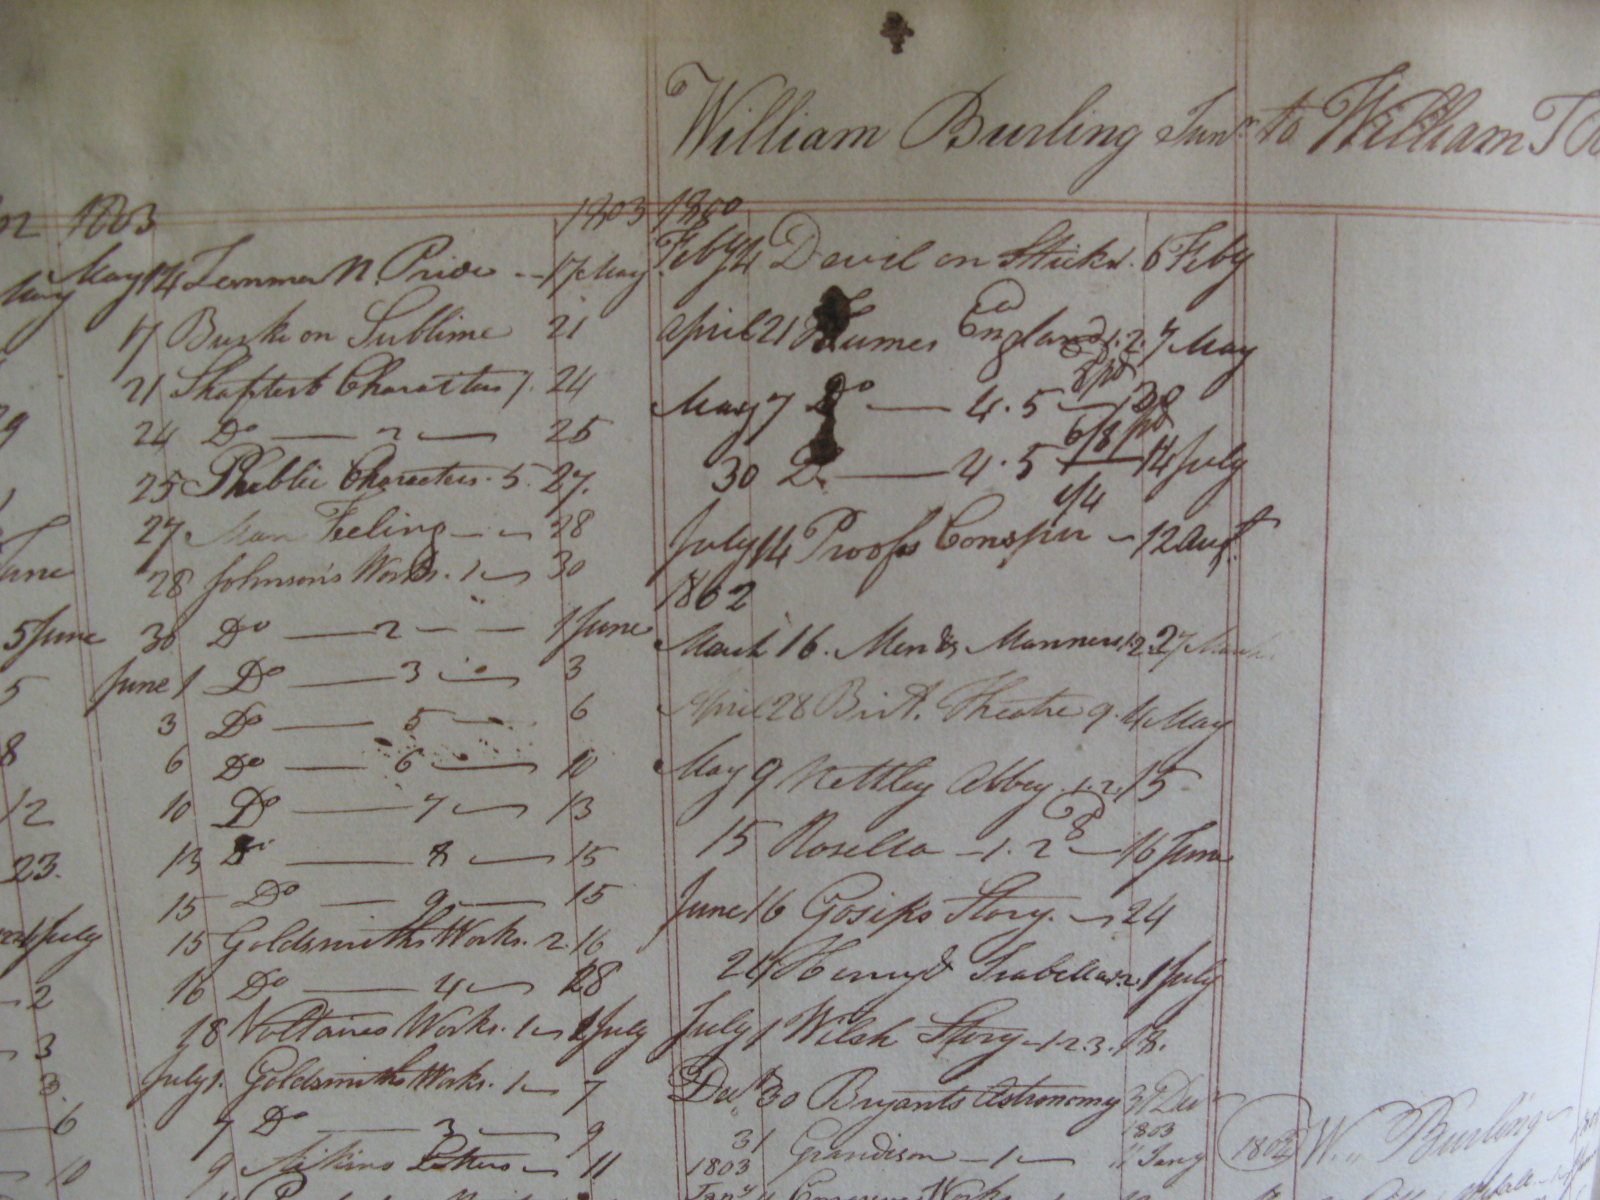 William Burling Junr to William T
1803
1803
May 14 Zemmer N. Price 17 May
17 Burke on Sublime 21
21 Shaftsb Charatters 1. 24
24 Do 2 25
25 Public Characters 5. 27.
27 Man Feeling 28
28 Johnson's Works. 1 30
30 Do 2 1 June
June 1 Do 3 3
3 Do 5 6
6 Do 6 10
10 Do 7 13
13 Do 8 15
15 Do 9 15
15 Goldsmiths Works. 2. 16
16 Do 4 28
18 Voltaires Works. 1 1 July
July 1. Goldsmiths Works. 1 7
7 Do 3 9
9 Aikins Letters 11
May
June
5 June
5
8
12
23.
July
2
3
3.
6
10
Feby 4 Devil on Sticks. 6 Feby
April 21 Humes England 1. 2. 7 May
May 7 Do 4. 5 30
30 Do 4. 5 6/8 pd 14 July
1/4
July 14 Proofs Conspir 12 Augt.
1802
March 16. Men & Manners 1 2. 27 March
April 28 Brit. Theatre 9. 4 May
May 9 Nettley Abbey. 1. 2. 15
15 Rosella 1. 2 16 June
June 16 Gosips Story. 24
24 Henry & Isabella 1. 2. 1 July
July 1 Wilsh Story 1 2. 3. 18.
Decr 30 Bryants Astronomy 31 Decr
1803
31 Grandison 1 11 Jany
1803
Jany Works
1802 Wm Burling